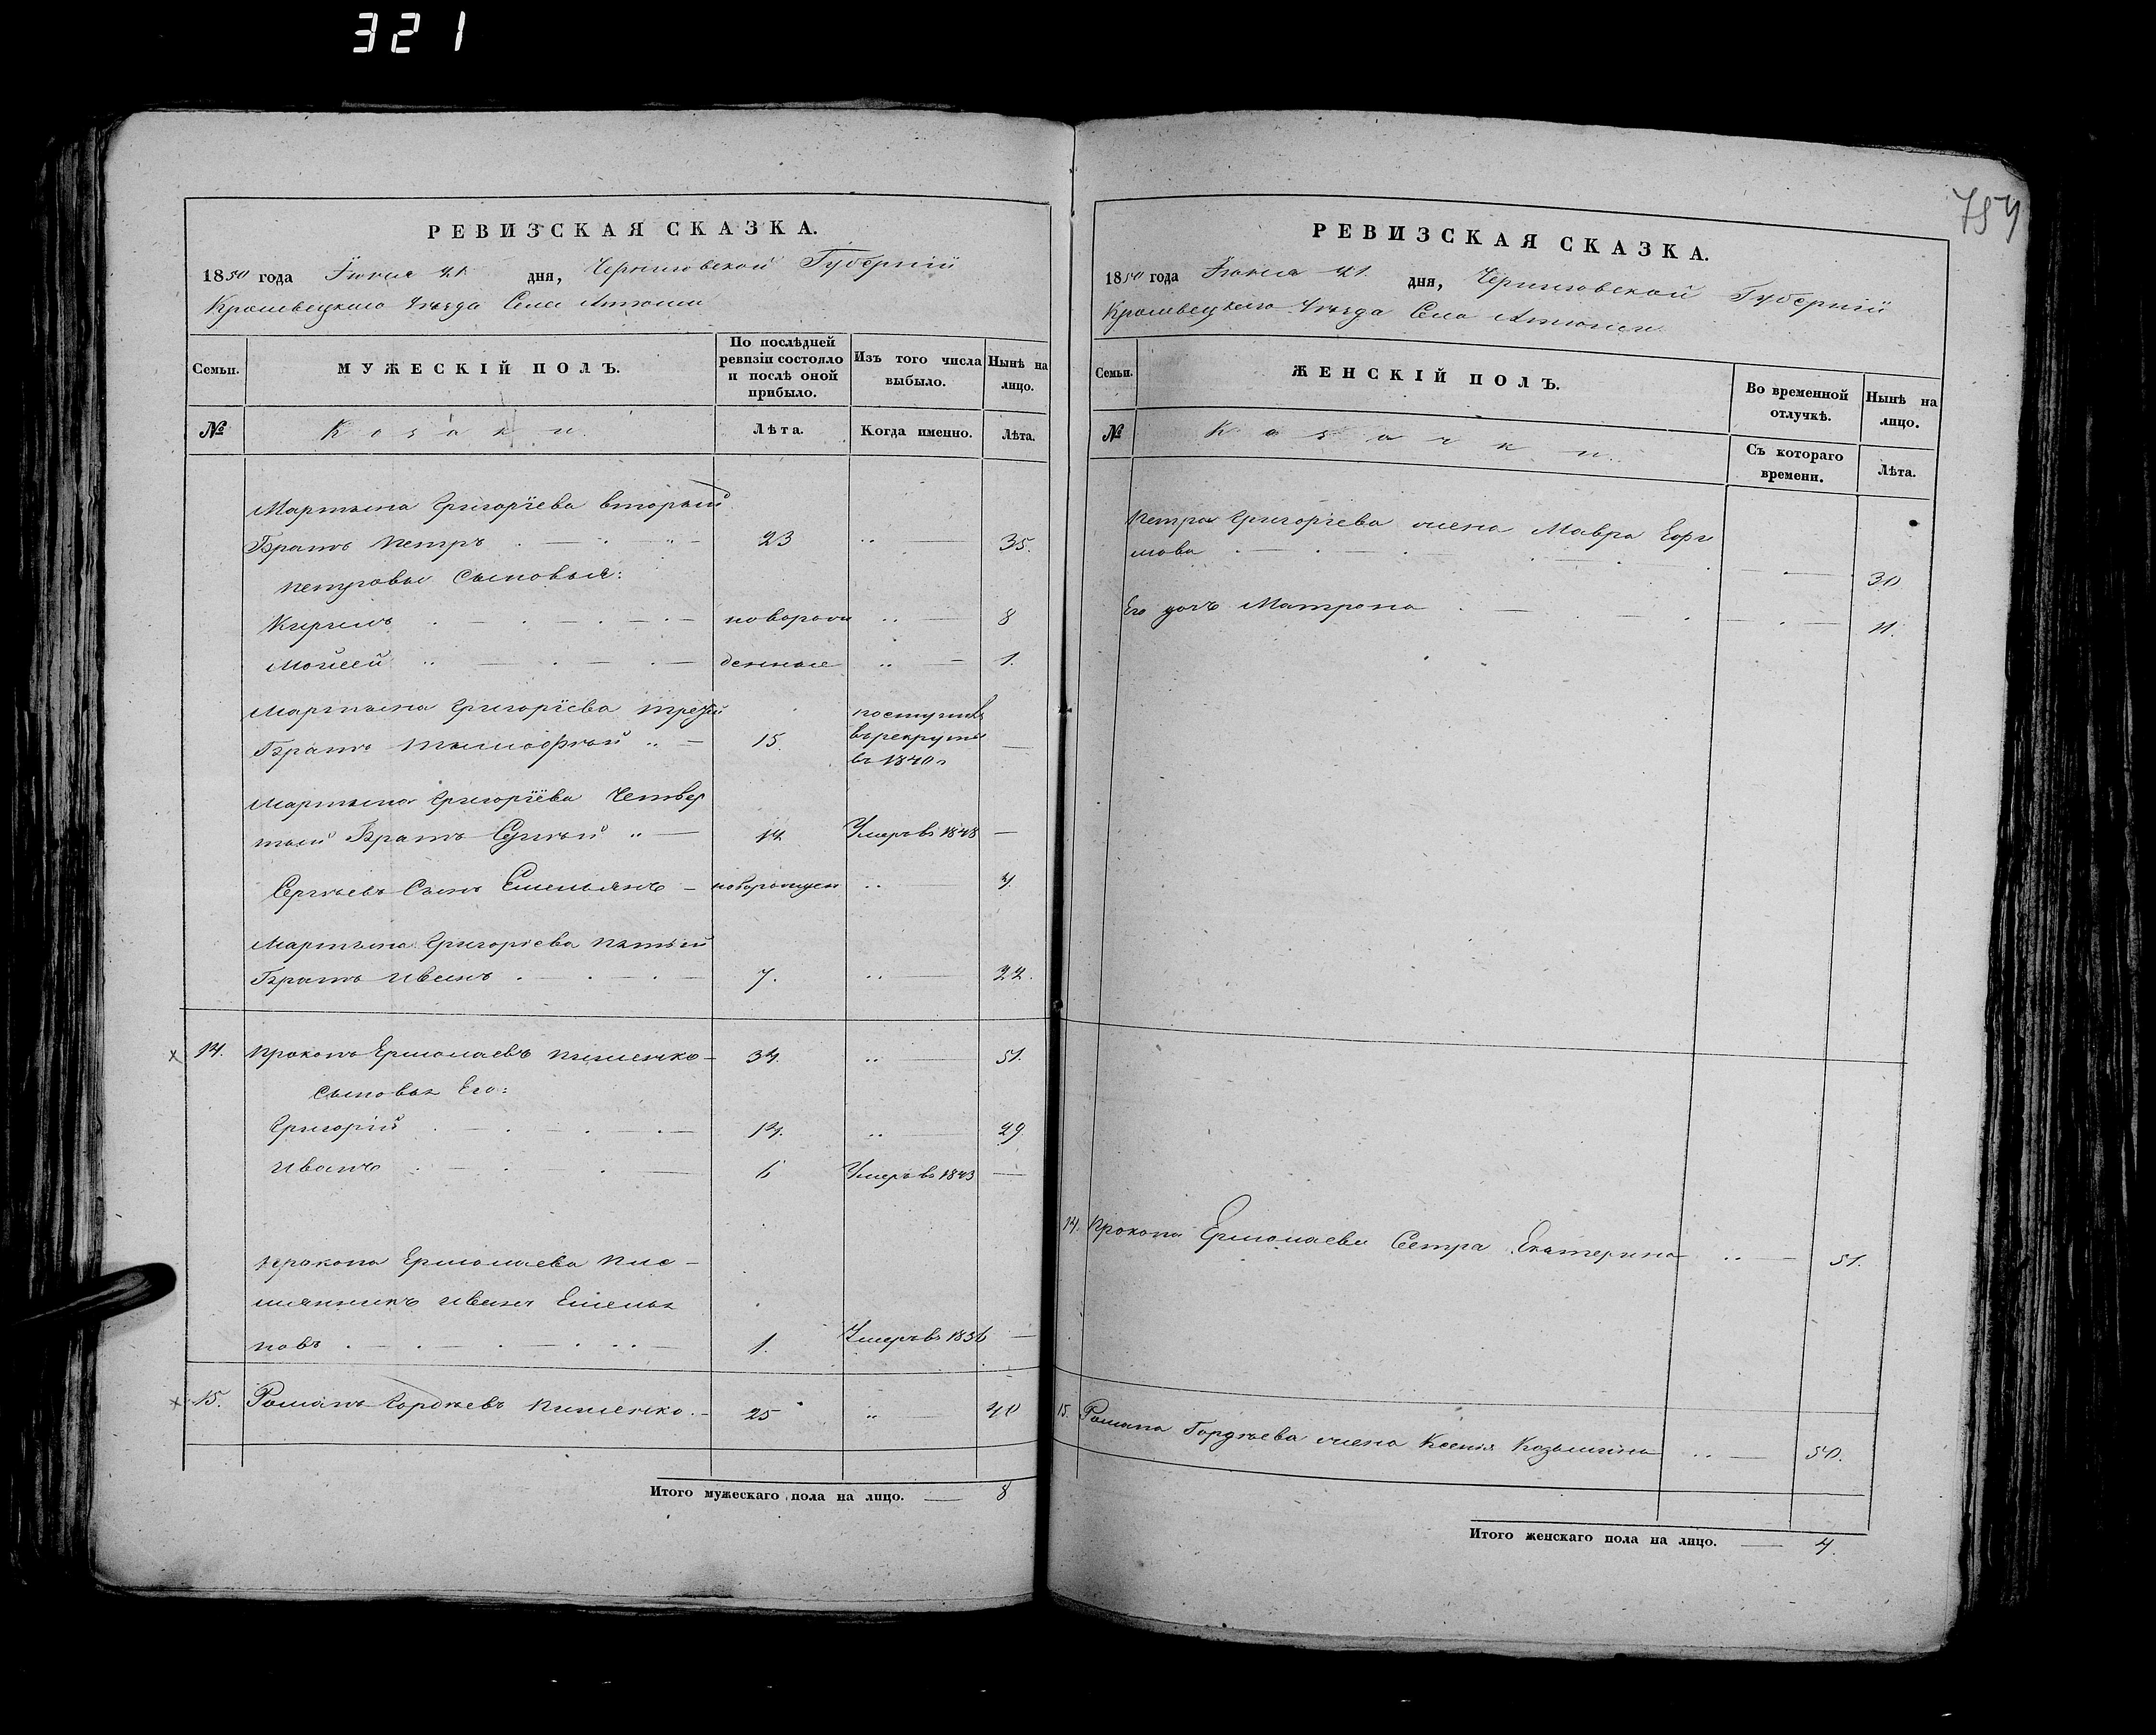 321
759
РЕВИЗСКАЯ СКАЗКА.
1850 года Іюня 21 дня, Черниговской Губерніи
Кролевецкаго Уѣзда Села
Семьи. МУЖЕСКІЙ ПОЛЪ. По послѣдней ревизіи состояло и послѣ оной прибыло. Изъ того числа выбыло. Нынѣ на лицо.
№ Козаки. Лѣта. Когда именно. Лѣта.
Мартына Григоріева вторый
Братъ Петръ 23 35.
Петровы сыновья:
Кирилъ новорож 8
Мойсей денные 1.
Мартына Григоріева третій поступилъ
Братъ Тимофѣй 15. въ рекруты
въ 1840 г
Мартына Григоріева Четвер
тый Братъ Сергѣй 12 Умеръ въ 1848
Сергѣевъ Сынъ Емельянъ новорожден 4.
Мартына Григоріева пятый
Братъ Иванъ 7. 22.
14. Прокопъ Ермолаевъ Пименко 34. 51.
сыновья Его:
Григорій 14. 29.
Иванъ 6 Умеръ въ 1843
Прокопа Ермолаева пле-
мянникъ Иванъ Емелья
новъ 1. Умеръ въ 1836
15. Романъ Гордѣевъ Пименко. 25 40
Итого мужескаго пола на лицо. 8
РЕВИЗСКАЯ СКАЗКА.
1850 года Іюня 21. дня, Черниговской Губерніи
Кролевецкаго Уѣзда Села
Семьи. ЖЕНСКІЙ ПОЛЪ. Во временной отлучкѣ. Нынѣ на лицо.
№ Козачки. Съ котораго времени. Лѣта.
Петра Григоріева жена Мавра Ефи
мова 30
Его дочь Матрона 11.
14. Прокопа Ермолаева Сестра Екатерина 51.
15. Романа Гордѣева жена Ксенія Козьмина 50.
Итого женскаго пола на лицо. 4.